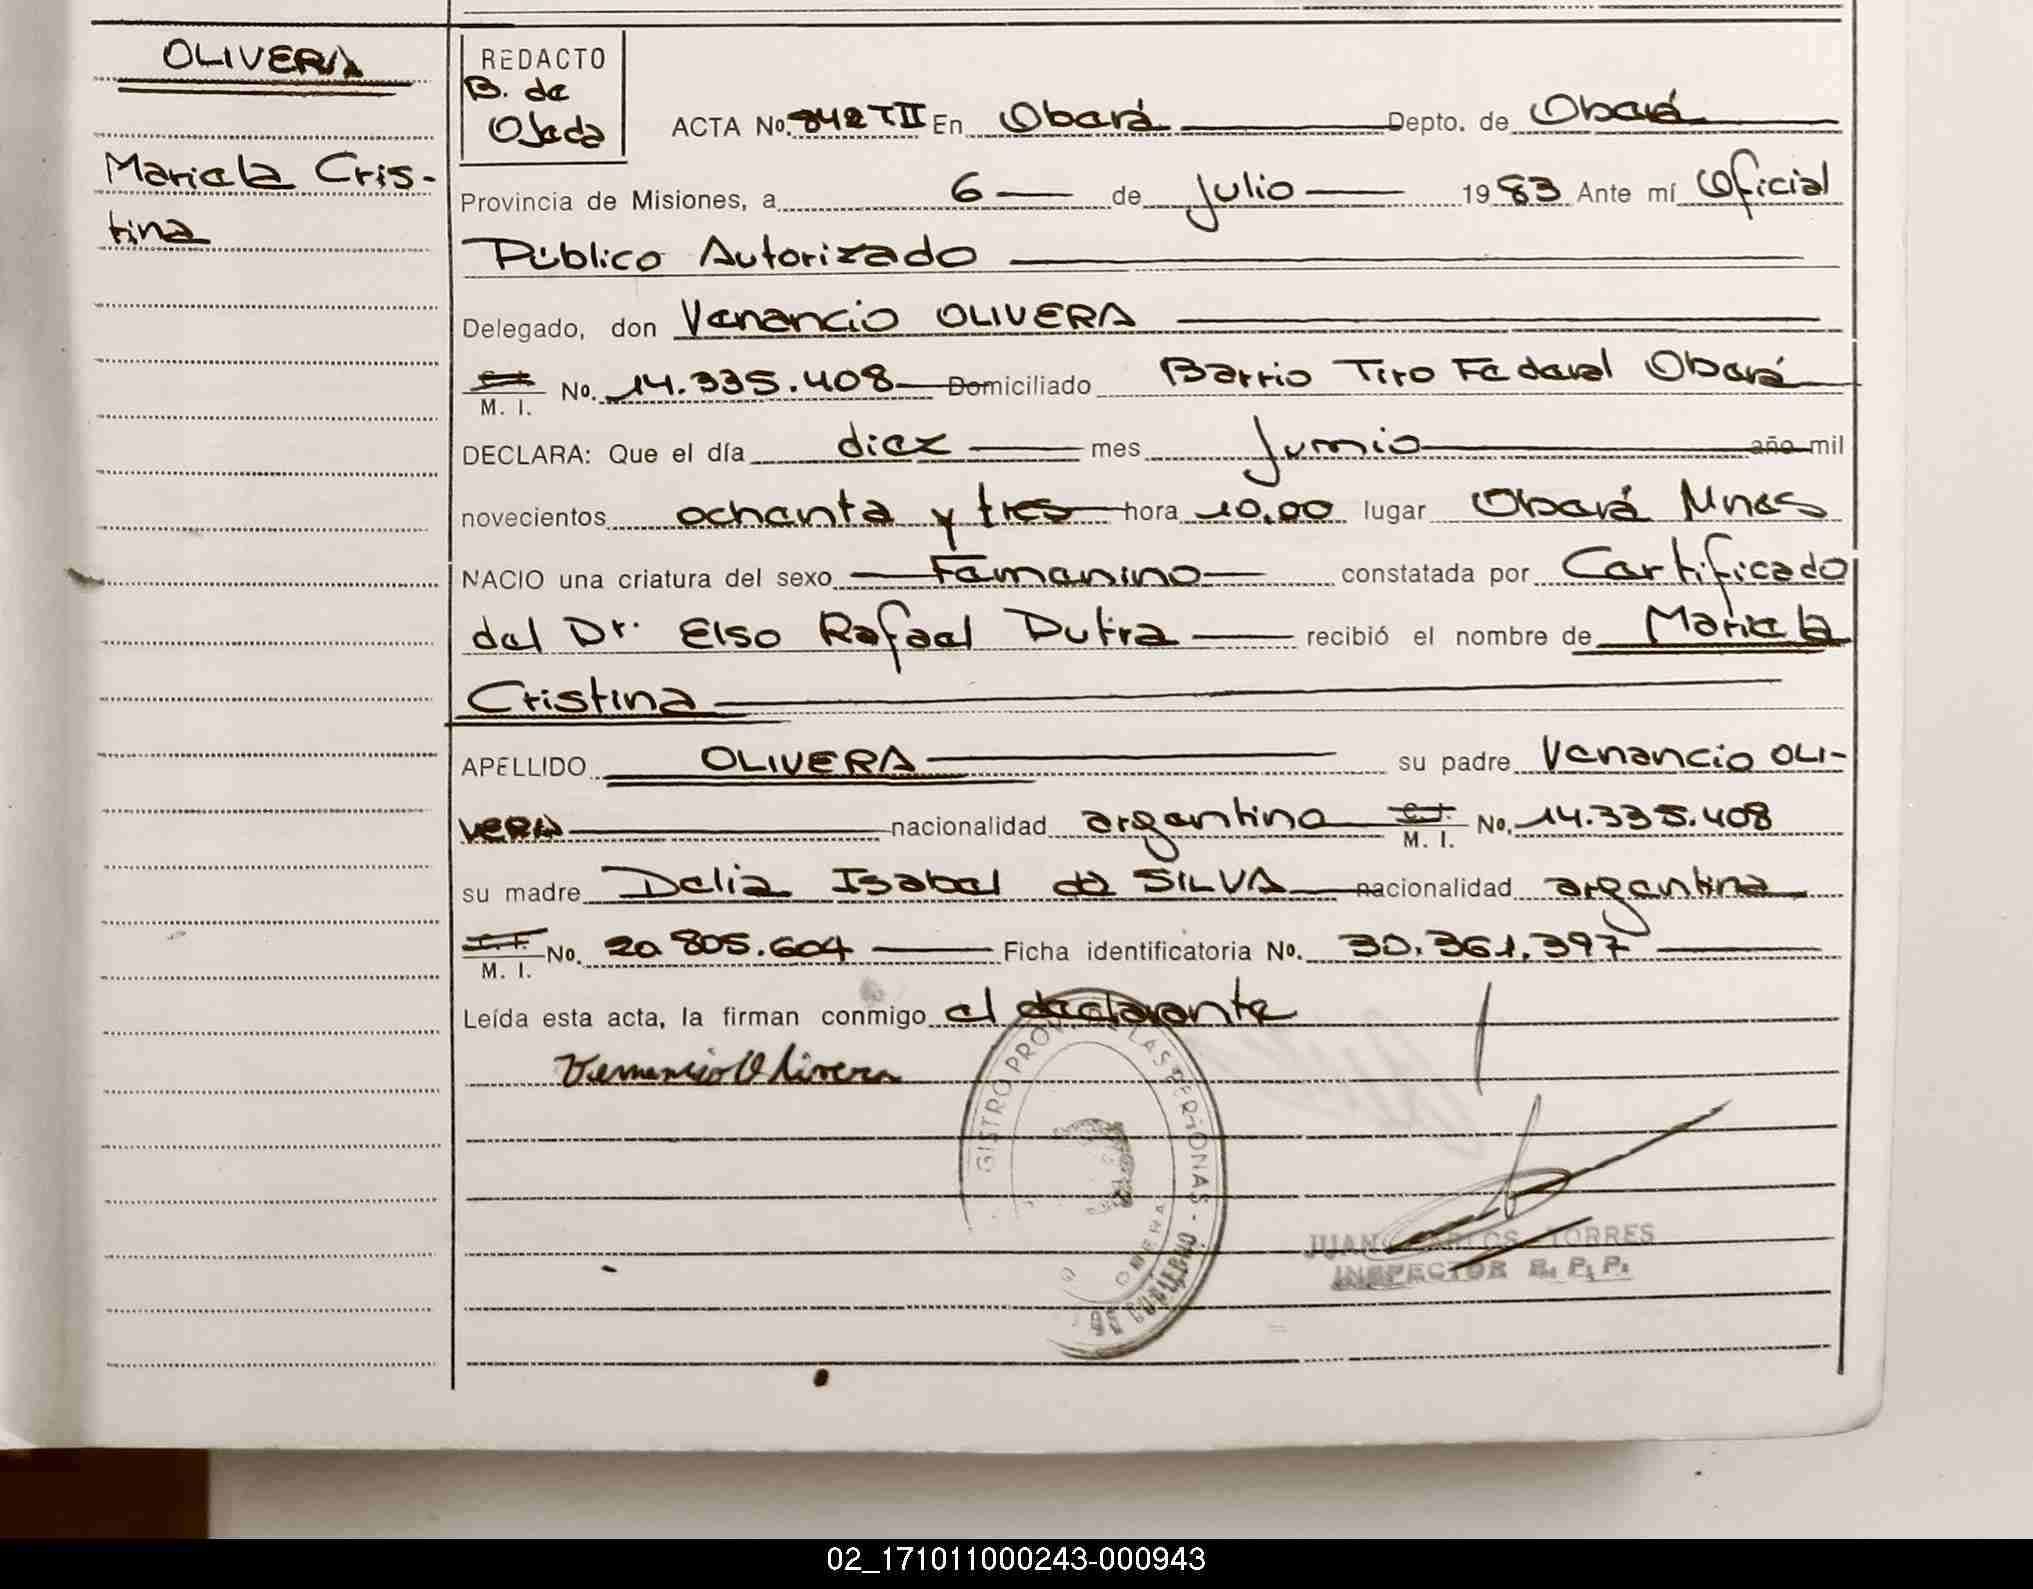 OLIVERA
Mariela Cris-
tina
REDACTO
B. de
Ojeda
ACTA No. 842 TII En Oberá Depto. de Oberá
Provincia de Misiones, a 6 de Julio 1983 Ante mí Oficial
Público Autorizado
Delegado, don Venancio OLIVERA
M. I. No. 14.335.408 Domiciliado Barrio Tiro Federal Oberá
DECLARA: Que el día diez mes Junio año mil
novecientos ochenta y tres hora 10,00 lugar Oberá Mnes
NACIO una criatura del sexo Femenino constatada por Certificado
del Dr. Elso Rafael Dutra recibió el nombre de Mariela
Cristina
APELLIDO OLIVERA su padre Venancio OLI-
VERA nacionalidad argentino C.I. M. I. No. 14.335.408
su madre Delia Isabel da SILVA nacionalidad argentina
M. I. No. 20.805.604 Ficha identificatoria No. 30.361.397
Leída esta acta, la firman conmigo el declarante
Venancio Olivera
GISTRO PROV. LAS PERSONAS -
OBERA
DE GOBIERNO
JUAN CARLOS TORRES
INSPECTOR R. P. P.
02_171011000243-000943